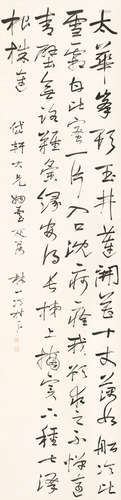 太華峯頭玉井蓮開花十丈藕如船冷比
雪霜甘比蜜一片入口沈痾痊我欲求之不憚遠
青壁無路難夤緣安得長梯上摘實下種七澤
根株連
大兄